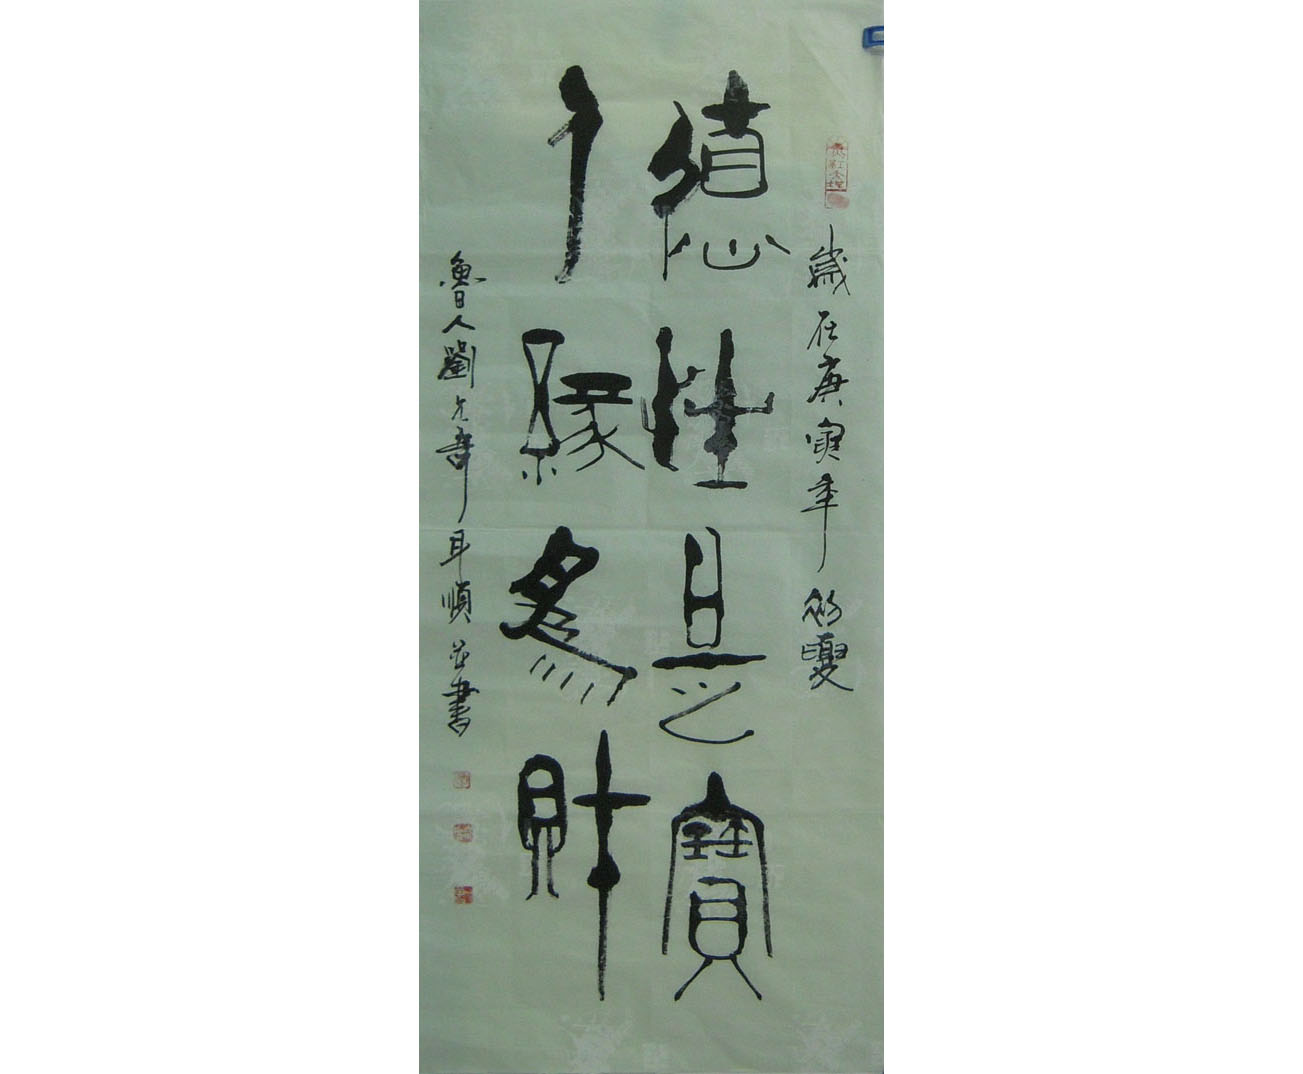 歲在庚寅年初夏
德性是寶
人緣為財
魯人劉奇耳順並書